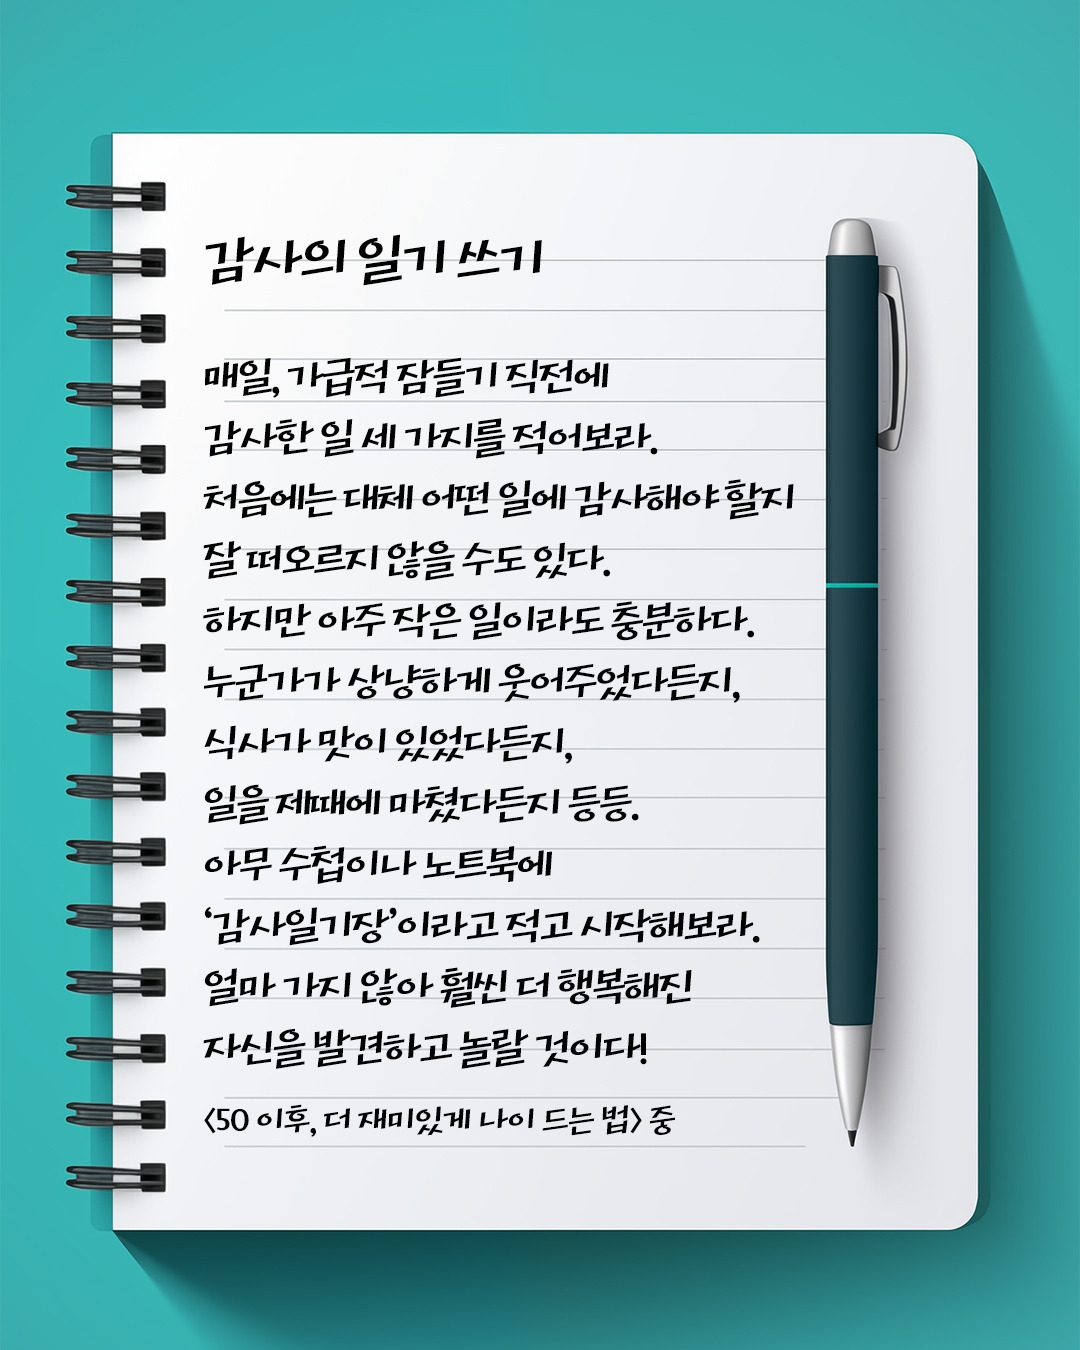 감사의 일기 쓰기
매일, 가급적 잠들기 직전에
감사한 일 세 가지를 적어보라.
처음에는 대체 어떤 일에 감사해야 할지
잘 떠오르지 않을 수도 있다.
하지만 아주 작은 일이라도 충분하다.
누군가가 상냥하게 웃어주었다든지,
식사가 맛이 있었다든지,
일을 제때에 마쳤다든지 등등.
아무 수첩이나 노트북에
‘감사일기장’이라고 적고 시작해보라.
얼마 가지 않아 훨씬 더 행복해진
자신을 발견하고 놀랄 것이다!
<50 이후, 더 재미있게 나이 드는 법> 중